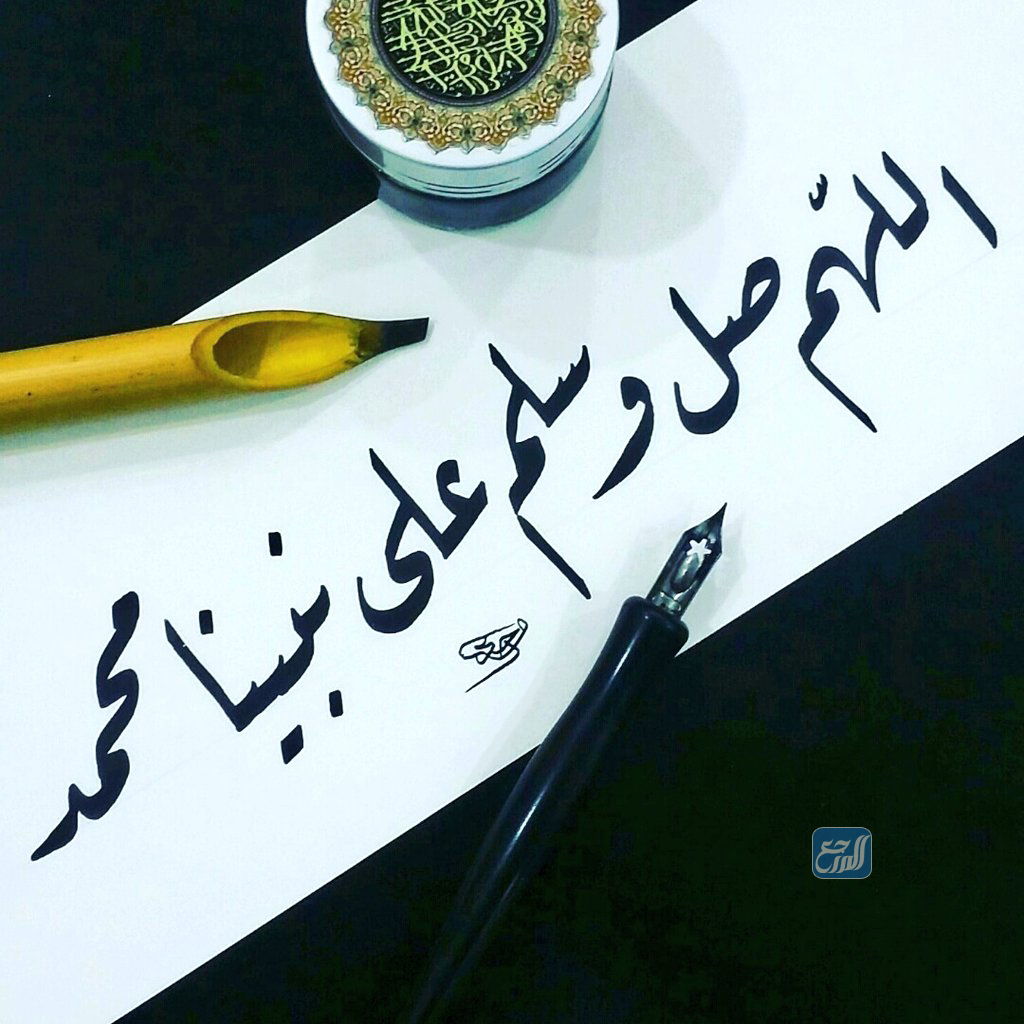 اللهم صل وسلم على نبينا محمد
المرجع